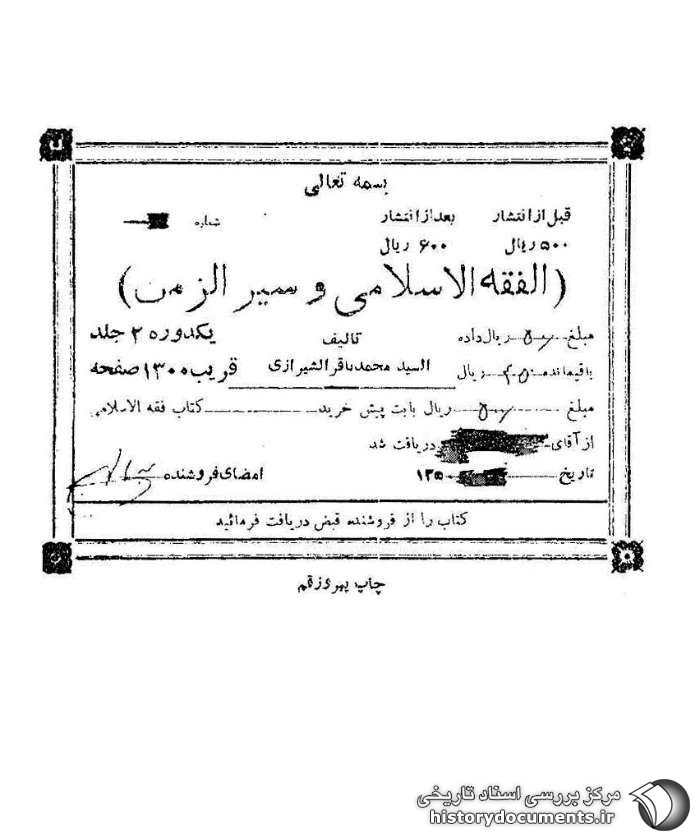 بسمه تعالی
قبل از انتشار بعد از انتشار شماره
۵۰۰ ریال ۶۰۰ ریال
(الفقه الاسلامی و سیر الزمن)
مبلغ ریال داده تالیف یکدوره ۲ جلد
باقیمانده ریال السید محمدباقر الشیرازی قریب ۱۳۰۰ صفحه
مبلغ ریال بابت پیش خرید کتاب فقه الاسلامی
از آقای دریافت شد
تاریخ ۱۳۵ امضای فروشنده
کتاب را از فروشنده قبض دریافت فرمائید
چاپ پیروز قم
مرکز بررسی اسناد تاریخی
historydocuments.ir